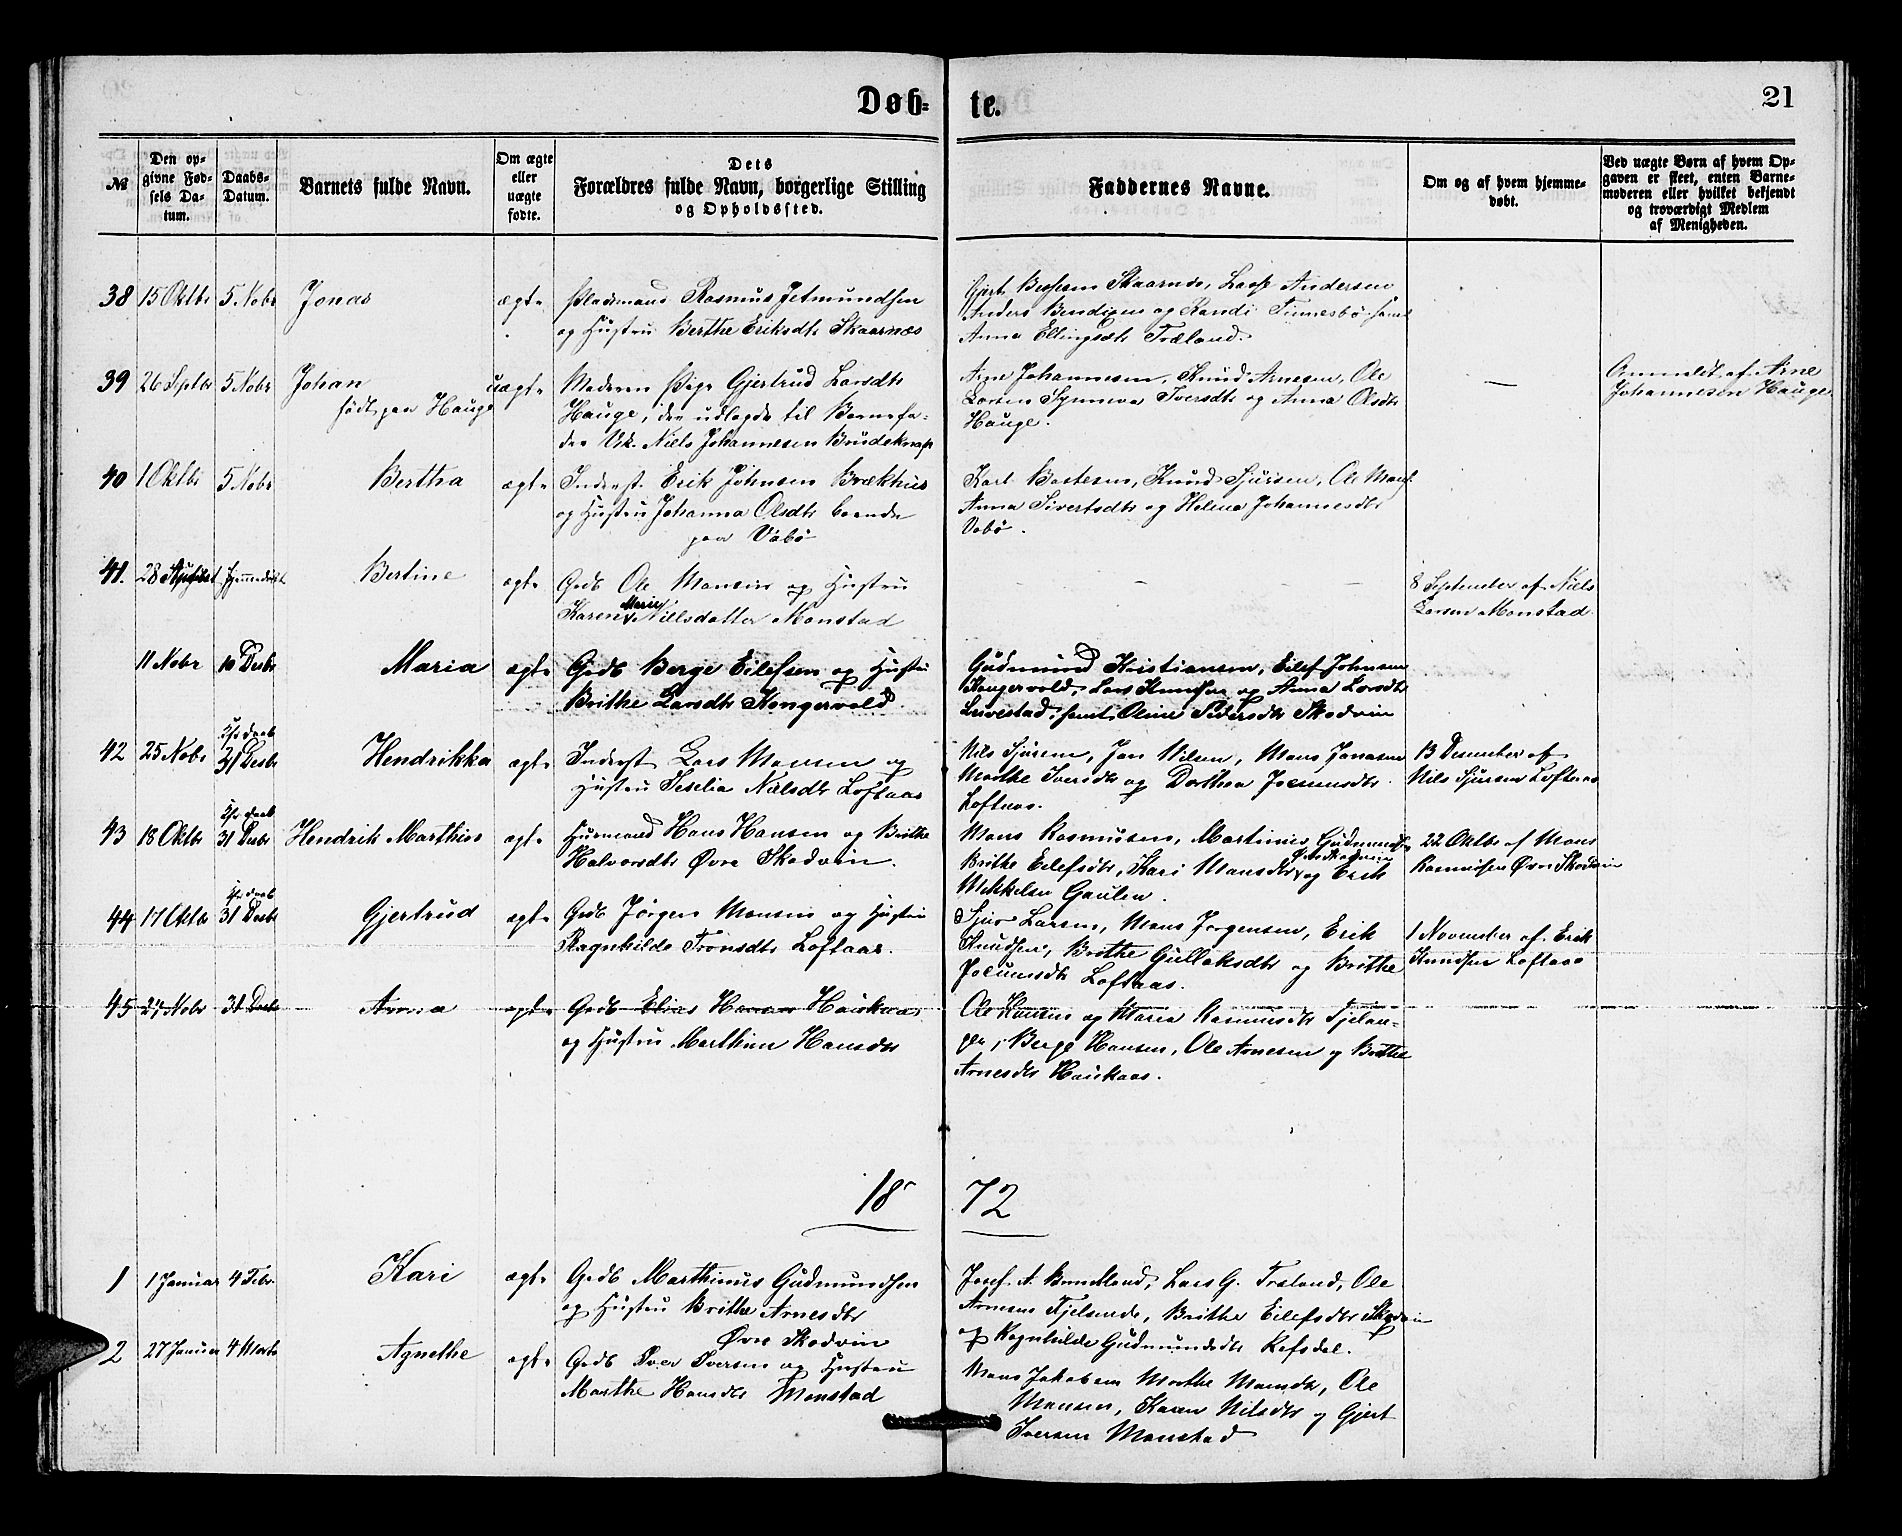 Døb-
te.
21
№
Den op-
givne Fød-
sels Da-
tum.
Daabs-
Datum.
Barnets fulde Navn.
Om ægte
eller
uægte
fødte.
Dets
Forældres fulde Navn, borgerlige Stilling
og Opholdssted.
Faddernes Navne.
Om og af hvem hjemme-
døbt.
Ved uægte Børn af hvem Op-
gaven er skeet, enten Barne-
moderen eller hvilket bekjendt
og troværdigt Medlem
af Menigheden.
38 15 Oktbr 5 Nobr Jonas ægte Pladsmand Rasmus Jetmundsen
og Hustru Berthe Eriksdtr Skaarnæs
Andersen
Anders Bendixen og Randi Tinnesbø samt
Anna Ellingsdtr Træland.
39 26 Septbr 5 Nobr Johan
født paa Hauge
uægte Moderen Pige Gjertrud Larsdtr
Hauge, der udlagde til Barnefa-
der Uk. Niels Johannesen Brudeknap
Arne Johannesen, Knud Arnesen, Ole
Larsen Synneva Iversdtr og Anna Olsdtr
Hauge.
—
Anmeldt af Arne
Johannesen Hauge
40 1 Oktbr 5 Nobr Bertha ægte Inderst. Erik Johnsen Brækhus
og Hustru Johanna Olsdtr boende
paa Vabø
Karl Bastesen, Knud Sjursen, Ole Mons.
Anna Sivertsdtr og Helena Johannesdtr
Vabø.
41. 28 Hjemmedøbt Bertine ægte Grdb Ole Monsen og Hustru
Karen Marie Nielsdatter Monstad
8 September af Niels
Larsen Monstad
11 Nobr 10 Desbr Maria ægte Grdb Berge Eilefsen og Hustru
Brithe Larsdtr Kongervold.
Gudmund Kristiansen, Eilef Johnsen
Kongervold, Lars Knudsen og Anna Larsdtr
Leivestad, samt Oline Pedersdtr Skodvin
42 25 Nobr 31 Desbr Hendrikka ægte Inderst Lars Monsen og
Hustru Seselia Nielsdtr Loftaas
Nils Sjursen, Jan Nilsen, Mons Jonasen
Marthe Iversdtr og Dorthea Jocumsdtr
Loftaas.
13 Desember af
Nils Sjursen Loftaas
43 18 Oktbr 31 Desbr Hendrik Marthies ægte Husmand Hans Hansen og Brithe
Halvorsdtr Øvre Skodvin.
Mons Rasmusen, Martinus Gudmundsen
Brithe Eilefsdtr, Kari Monsdtr Øvre Skodvin og Erik
Mikkelsen Gaulen.
22 Oktbr af Mons
Rasmusen Øvre Skodvin
44 17 Oktbr 31 Desbr Gjertrud ægte Grdb Jørgen Monsen og Hustru
Ragnhilde Tronsdtr Loftaas.
Sjur Larsen, Mons Jørgensen, Erik
Knudsen, Brithe Gullaksdtr og Brithe
Jocumsdtr Loftaas.
1 November af Erik
Knudsen Loftaas
45 27 Nobr 31 Desbr Anna ægte Grdb Elias Hansen Haukaas
og Hustru Marthine Hansdtr
Ole Hansen og Maria Rasmusdtr Fjelan-
ger, Berge Hansen, Ole Arnesen og Brithe
Arnesdtr Haukaas.
18
72
1 1 Januar 4 Febr. Kari ægte Grdb Marthinus Gudmundsen
og Hustru Brithe Arnesdtr
Øvre Skodvin
Josef A. Lars G. Træland, Ole
Arnesen Brithe Eilefsdtr Skodvin
og Ragnhilde Gudmundsdtr Refsdal.
2 27 Januar 4 Marts Agnethe ægte Grdb Iver Iversen og Hustru
Marthe Hansdtr Monstad
Mons Jakobsen Marthe Monsdtr, Ole
Monsen, Karen Nilsdtr og Gjert
Iversen Monstad